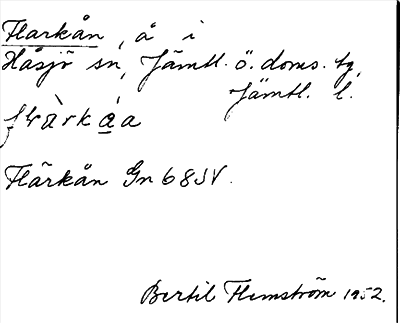 Flarkån, å i
Håsjö sn, Jämtl. ö. doms. tg,
Jämtl. l.
Flärkån Gn 68 SV.
Bertil Flemström 1952.